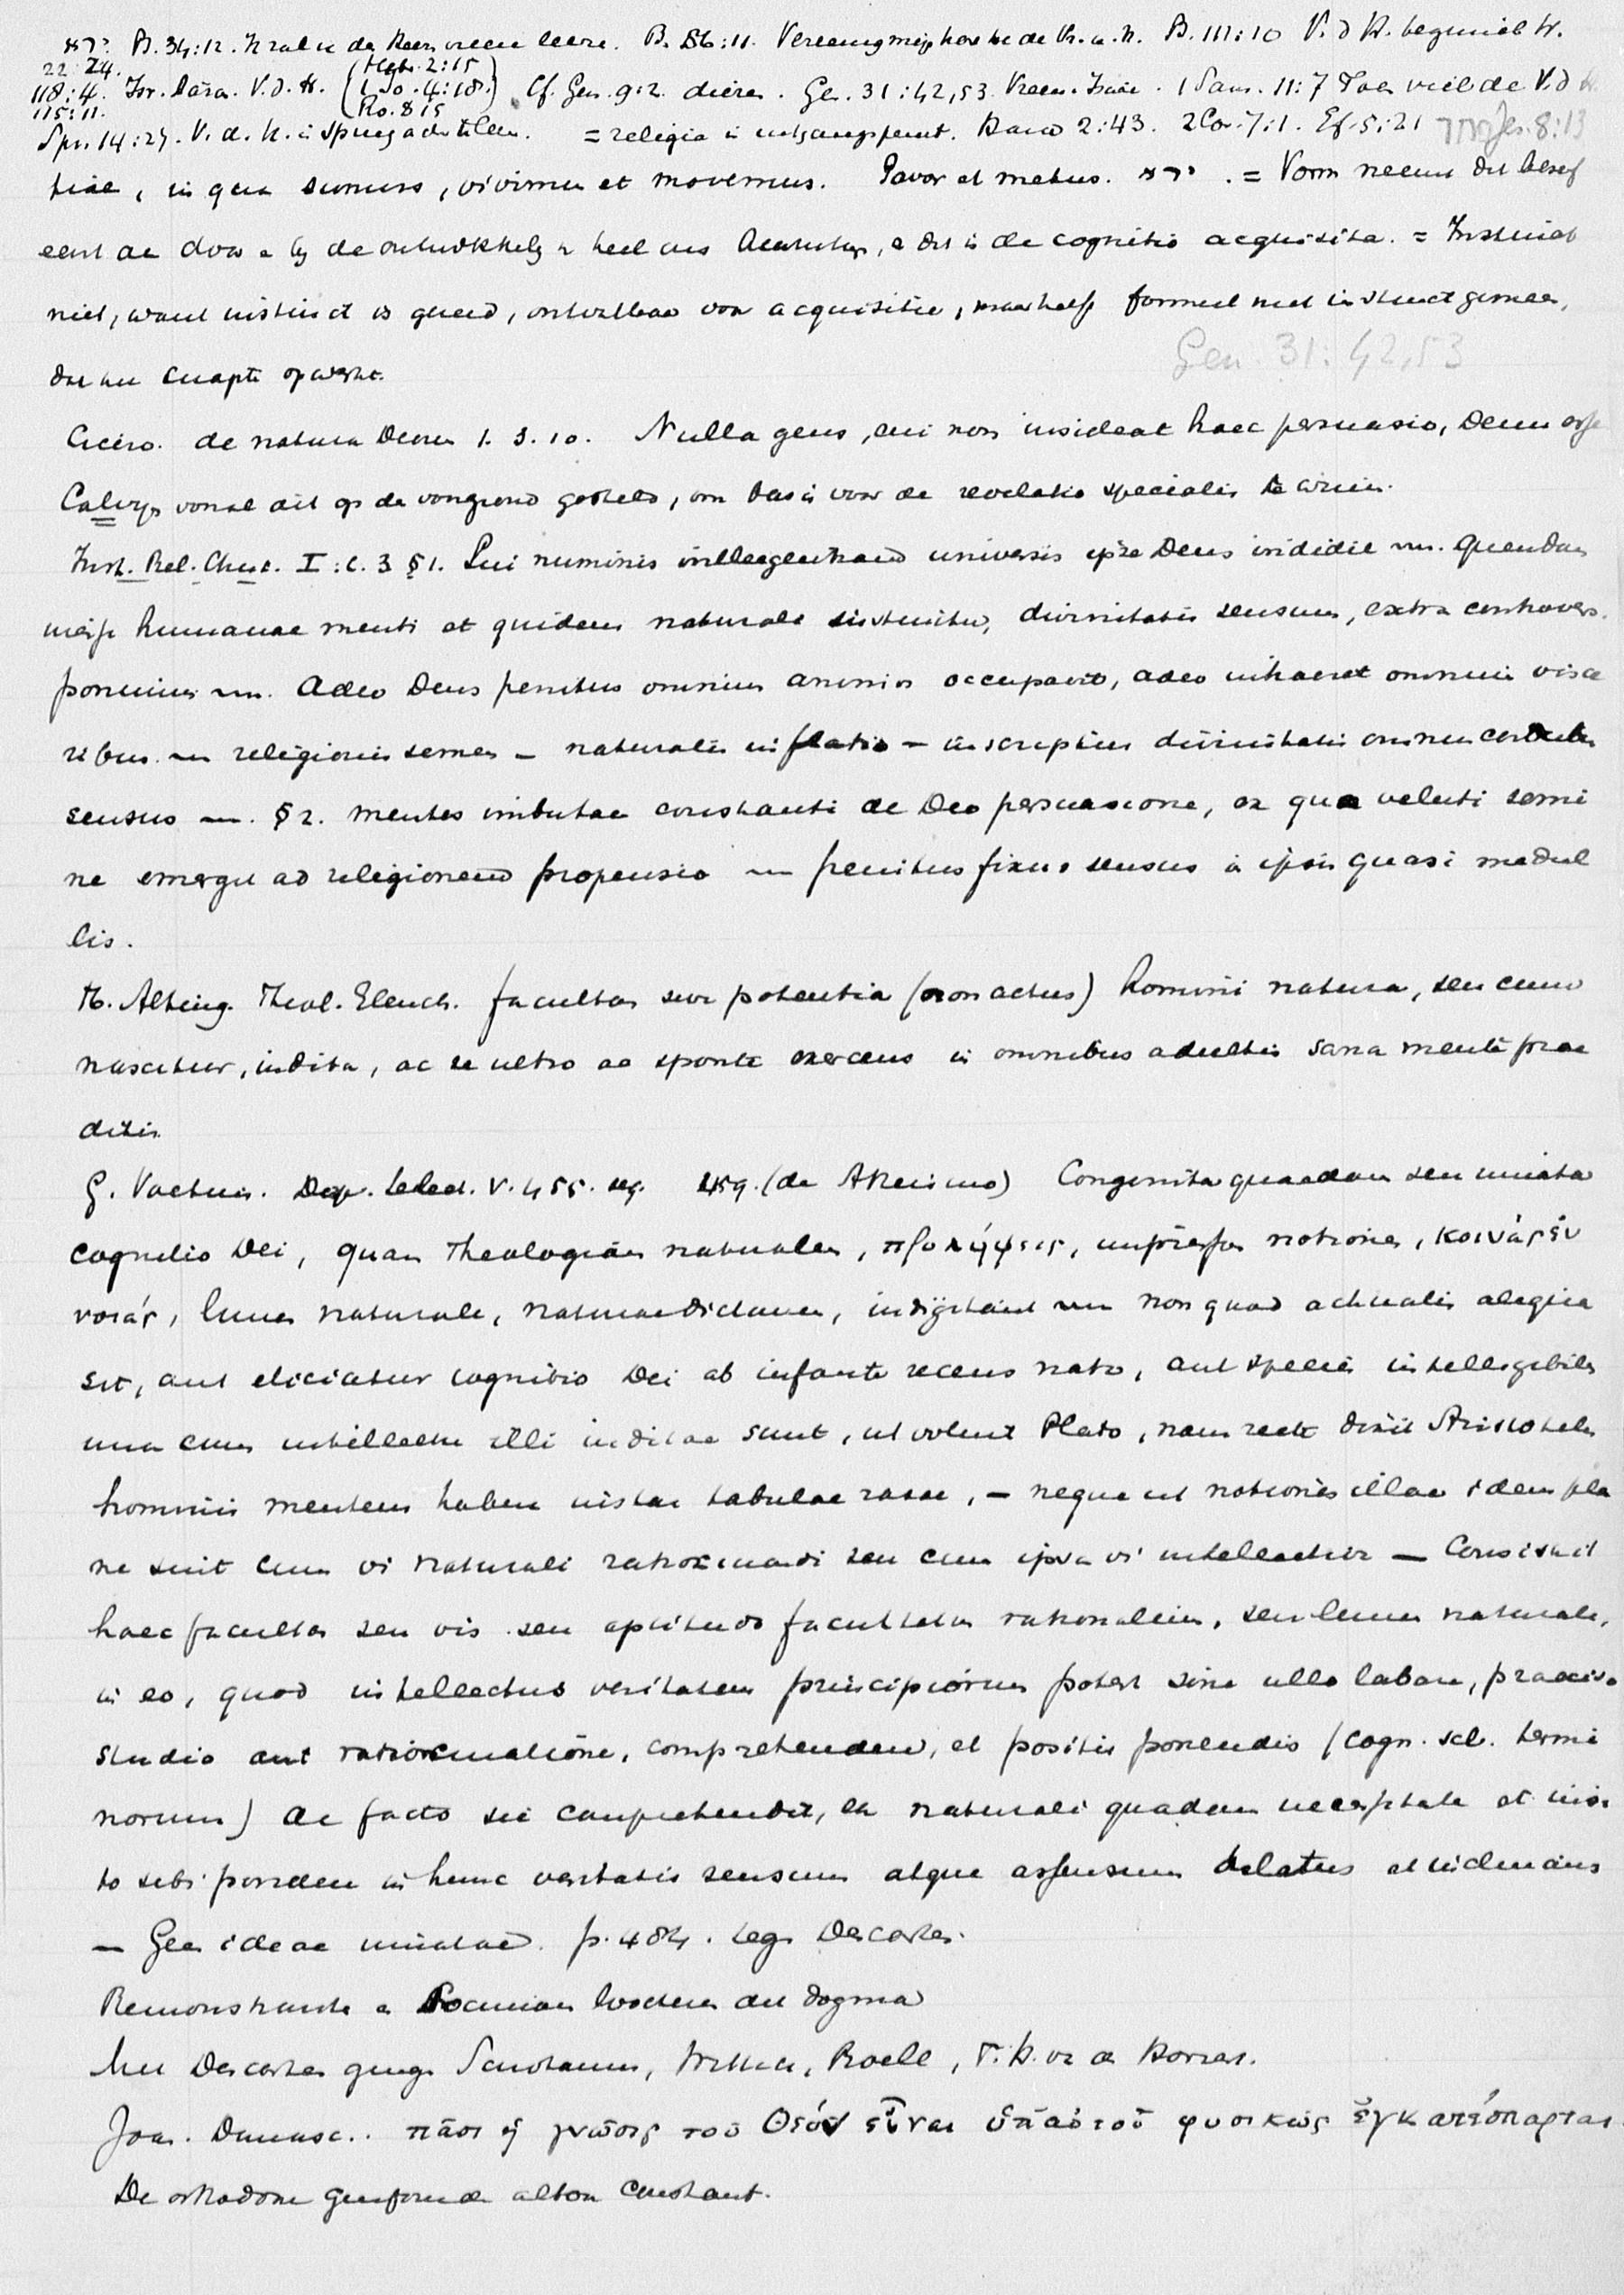 ירא. Ps. 34:12. Ik zal u de Heeren vreeze leeren. Ps. 86:11. Vereenig mijn hart tot de Vr. u. N. Ps. 111:10 V. d H. beginsel W.
22:24.
118:4. Isr. Aäron. V. d. H. (Hebr. 2:15
115:11. 1 Jo. 4:18.
Ro. 8:15) Cf. Gen. 9:2. dieren. Ge. 31:42,53. Vreeze Izaäc. 1 Sam. 11:7 Toen viel de V. d H.
Spr. 14:27. V. d. H. is springader des levens. = religie in uitgangspunt. Rand 2:43. 2 Cor. 7:1. Ef. 5:21 Jes. 8:13
tiae, in qua sumus, vivimus et movemus. Pavor et metus. ירא. = Vorm neemt dit besef
eerst aan door en bij de ontwikkeling v heel ons bewustzijn, en dit is de cognitio acquisita. = Instinct
niet, want instinct is gereed, onvatbaar voor acquisitie, maar half formeel met instinct gemeen,
Gen. 31:42,53
dat het conapte opwerkt.
Cicero. de natura Deorum 1. 3. 10. Nulla gens, cui non insideat haec persuasio, Deum esse
Calvijn vooral dit op de voorgrond gesteld, om basis voor de revelatio specialis te winnen.
Inst. Rel. Christ. I: c. 3 §1. Sui numinis intelligentiam universis ipse Deus indidit ~. Quendam
inesse humanae menti et quidem naturali instinctu, divinitatis sensum, extra controvers.
ponimus ~. Adeo Deus penitus omnium animos occupavit, adeo inhaeret omnium visce
ribus ~ religionis semen – naturalis inflatio – inscriptum divinitatis omnium cordibus
sensus ~. §2. mentes imbutae constanti de Deo persuasione, ex qua veluti semi
ne emergit ad religionem propensio ~ penitus fixus sensus in ipsis quasi medul
lis.
H. Alting. Theol. Elench. facultas sive potentia (non actus) homini natura, seu cum
nascitur, indita, ac se ultro ac sponte exercens in omnibus adultis sana mente prae
ditis.
G. Voetius. Disp. Select. V. 455. sq. 459. (de Atheismo) Congenita quaedam seu innata
cognitio Dei, quam Theologiam naturalem, προλήψεις, impressas notiones, κοινάς ἐν
νοιάς, lumen naturale, naturae dictamen, indigitant ~ non quod actualis aliqua
sit, aut eliciatur cognitio Dei ab infante recens nato, aut species intelligibiles
una cum intellectu illi inditae sunt, ut voluit Plato, nam recte dixit Aristoteles
hominis mentem habere instar tabulae rasae, – neque ut notiones illae idem pla
ne sint cum vi naturali ratiocinandi seu cum ipsa vi intellectus — Consistit
haec facultas seu vis seu aptitudo facultatis rationalium, seu lumen naturale,
in eo, quod intellectus veritatem principiorum potest sine ullo labore, praevio
studio aut ratiocinatione, comprehendere, et positis ponendis (cogn. scl. termi
norum) de facto sic comprehendit, ex naturali quadam necessitate et insi
to sibi pondere in hunc veritatis sensum atque assensum delatus et inclinans
— Geen ideae innatae. p. 484. tegen Descartes.
Remonstranten en Socinianen loochenen dit dogma
Met Descartes ging Schotanus, Wittich, Roell, T. H. v d Honert.
Joan. Damasc. . πᾶσι ἡ γνῶσις τοῦ Θεόν εἶναι ὑπ' αὐτοῦ φυσικῶς ἐγκατέσπαρται
De orthodoxe Gereformde altoos constant.